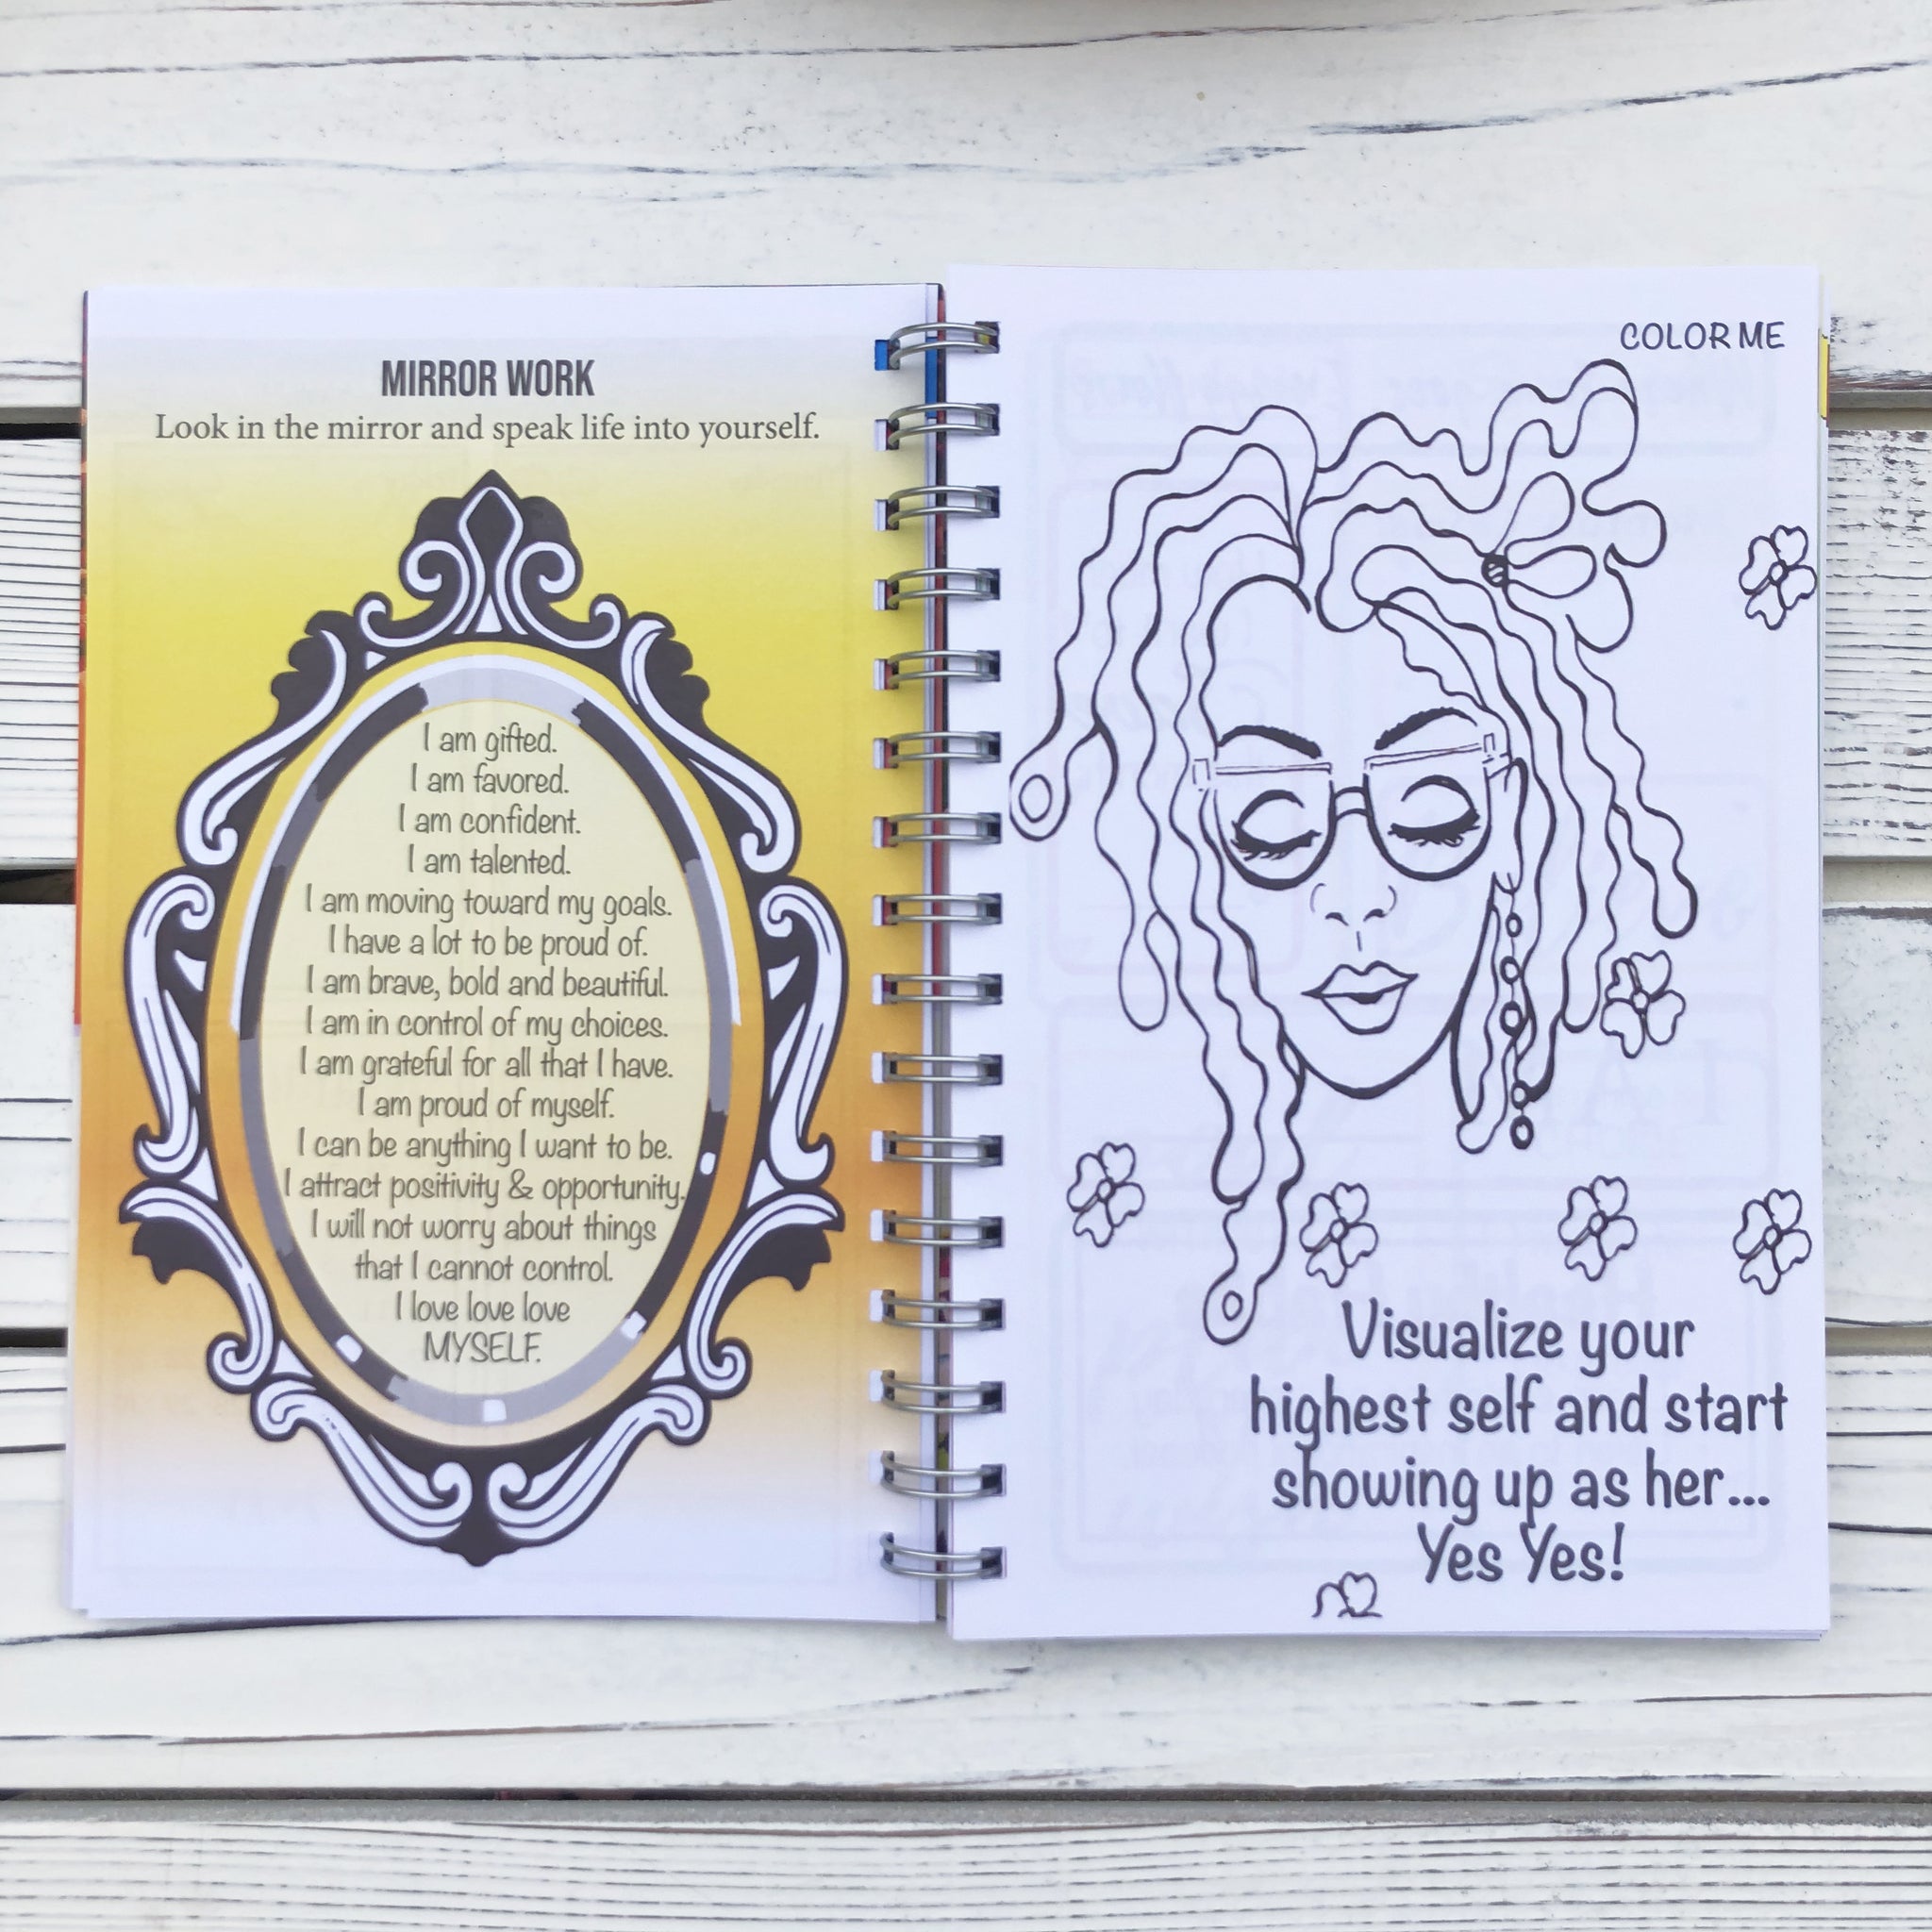 MIRROR WORK
Look in the mirror and speak life into yourself.
I am gifted.
I am favored.
I am confident.
I am talented.
I am moving toward my goals.
I have a lot to be proud of.
I am brave, bold and beautiful.
I am in control of my choices.
I am grateful for all that I have.
I am proud of myself.
I can be anything I want to be.
I attract positivity & opportunity.
I will not worry about things
that I cannot control.
I love love love
MYSELF.
COLOR ME
Visualize your
highest self and start
showing up as her...
Yes Yes!